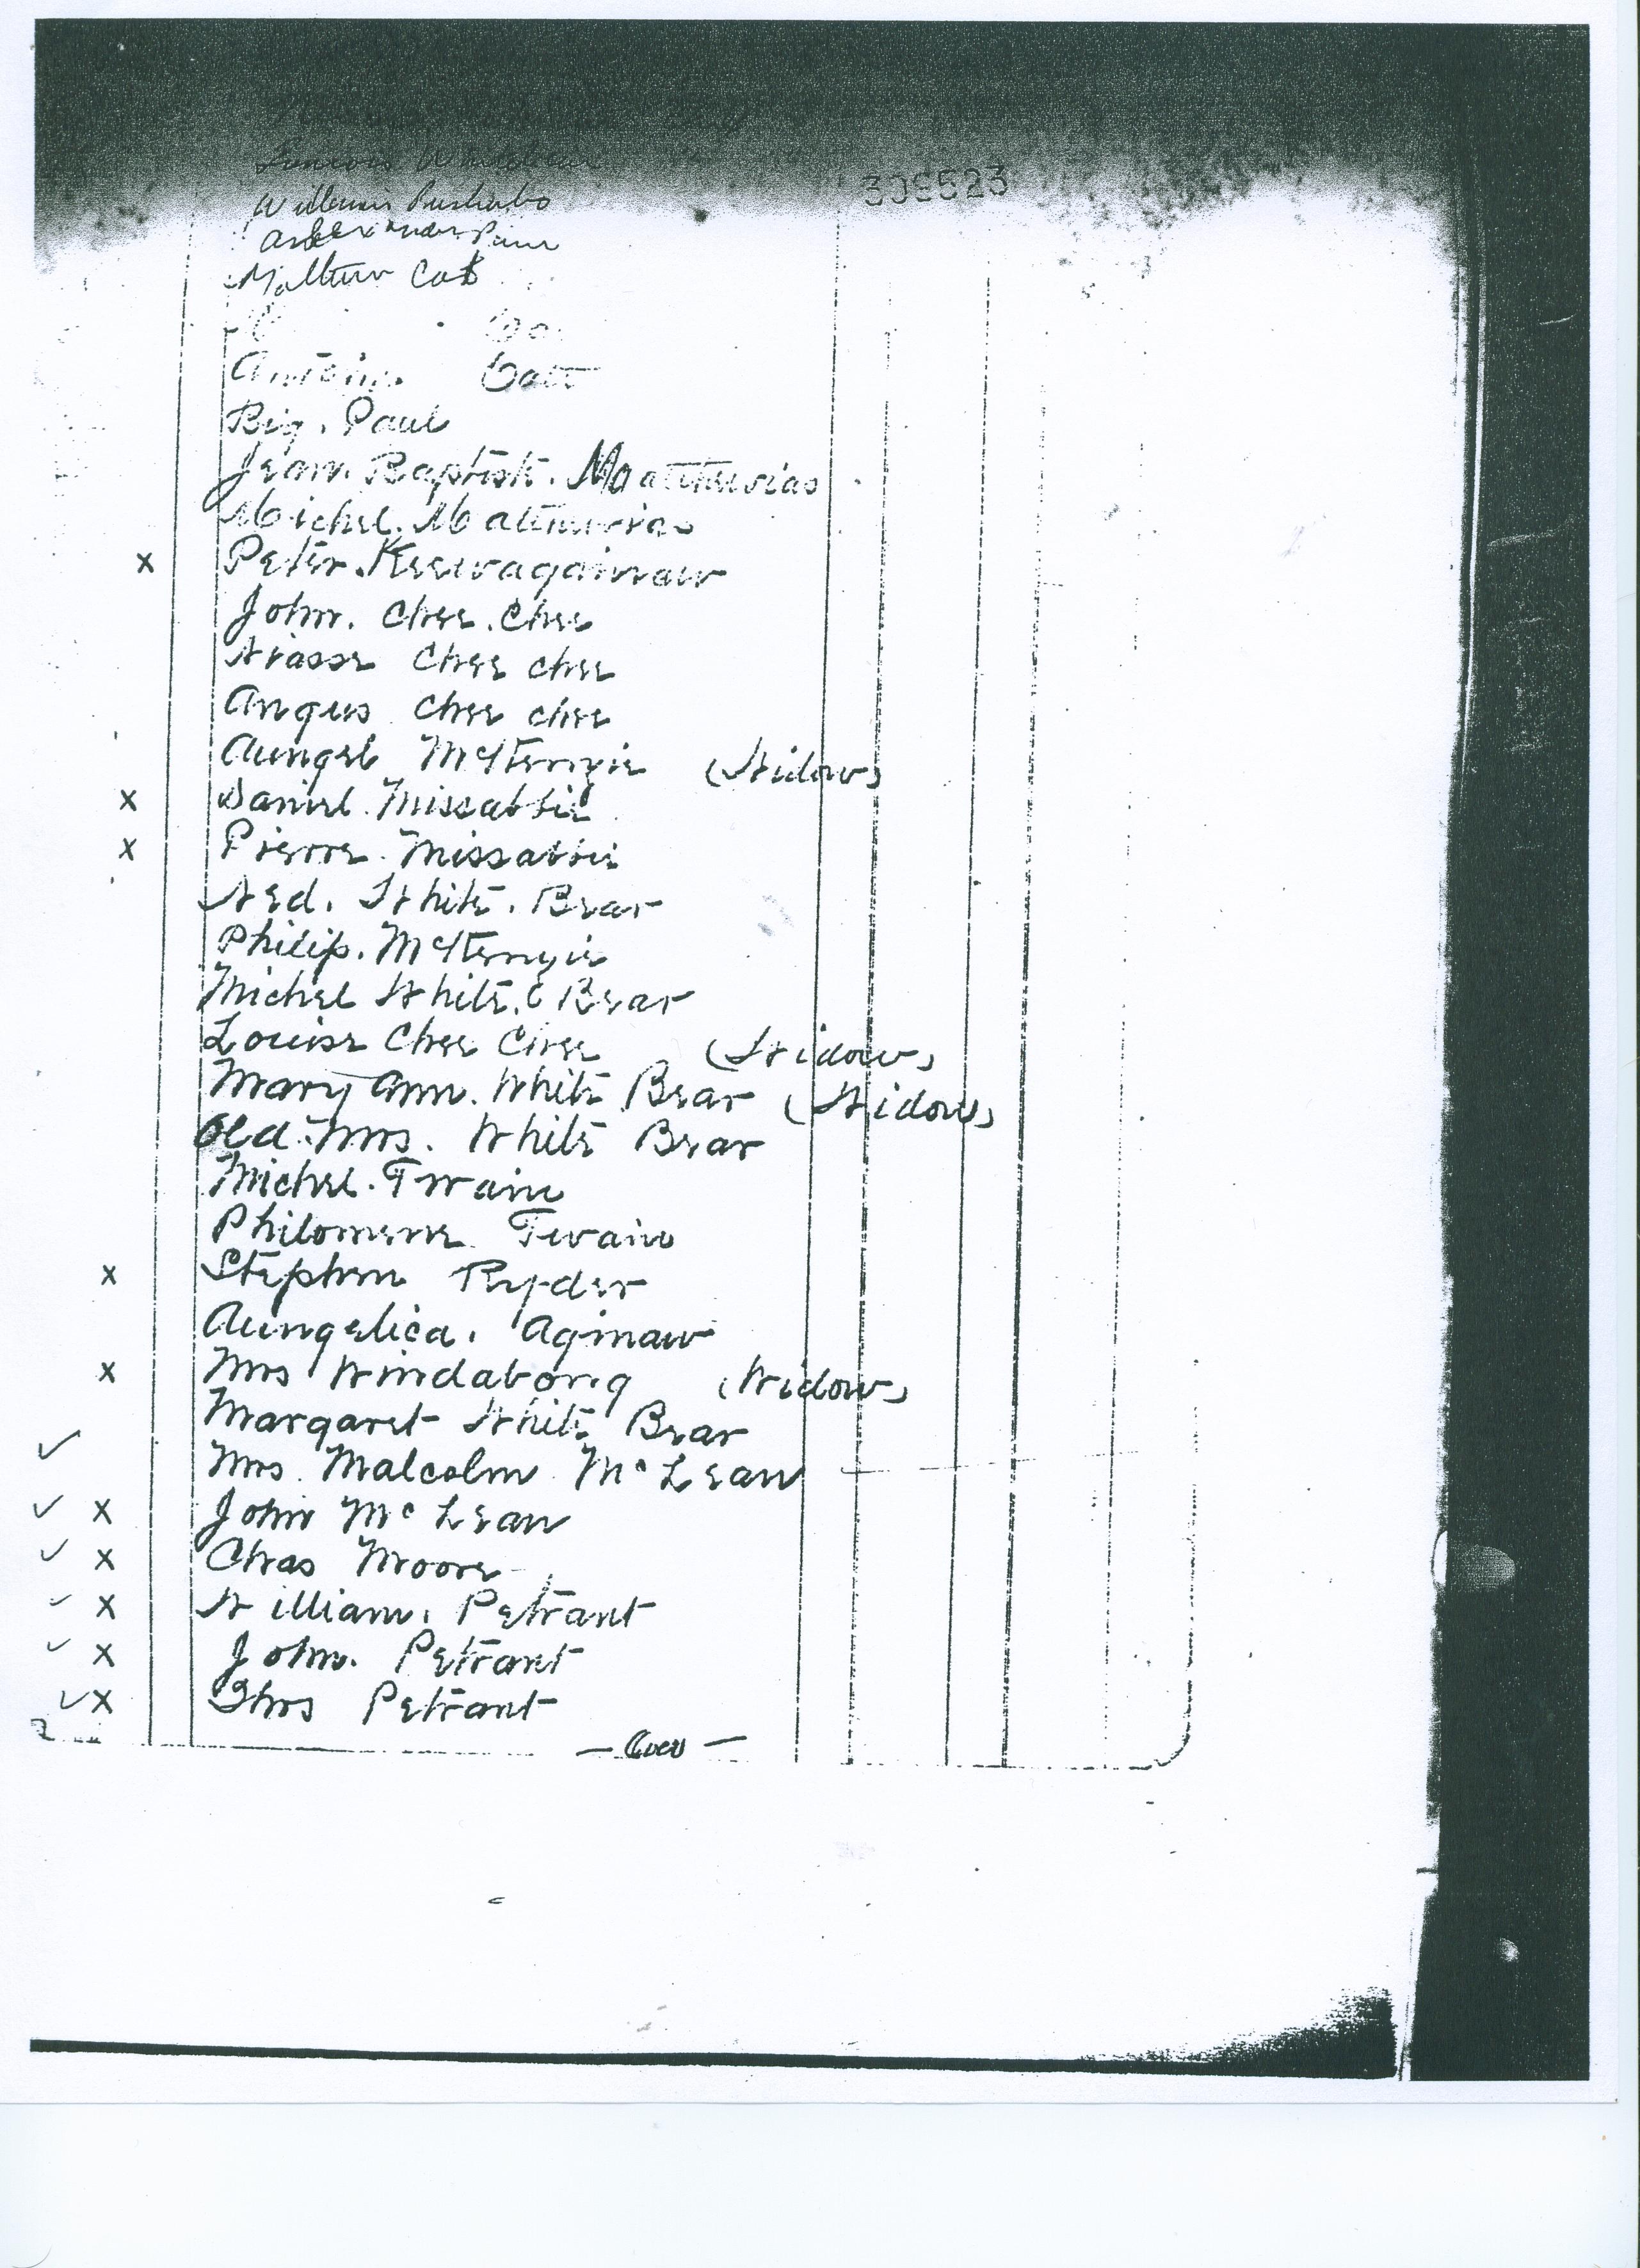 309523
Matthew Cat
Antoine Catt
Big. Paul
Jean. Baptist. Maatthewias
Michel. Matthewias
x Peter. Keewagainaw
John. Chee. Chee
Chee chee
Angus Chee chee
Aungel McKenzie (Widow)
x Daniel. Missabbie
x Pierre. Missabbie
Ned. White. Bear
Philip. McKenzie
Michel White. Bear
Louise Chee Chee (Widow)
Mary Ann. White Bear (Widow)
Old. Mrs. White Bear
Michel. Twain
Philomene Twain
x Stephen Ryder
Aungelica. Aginaw
x Mrs Windabong (Widow)
Margaret White Bear
✓ Mrs. Malcolm McLean
✓ x John McLean
✓ x Chas Moore
✓ x William. Petrant
✓ x John. Petrant
✓ x Thos Petrant
— Over —